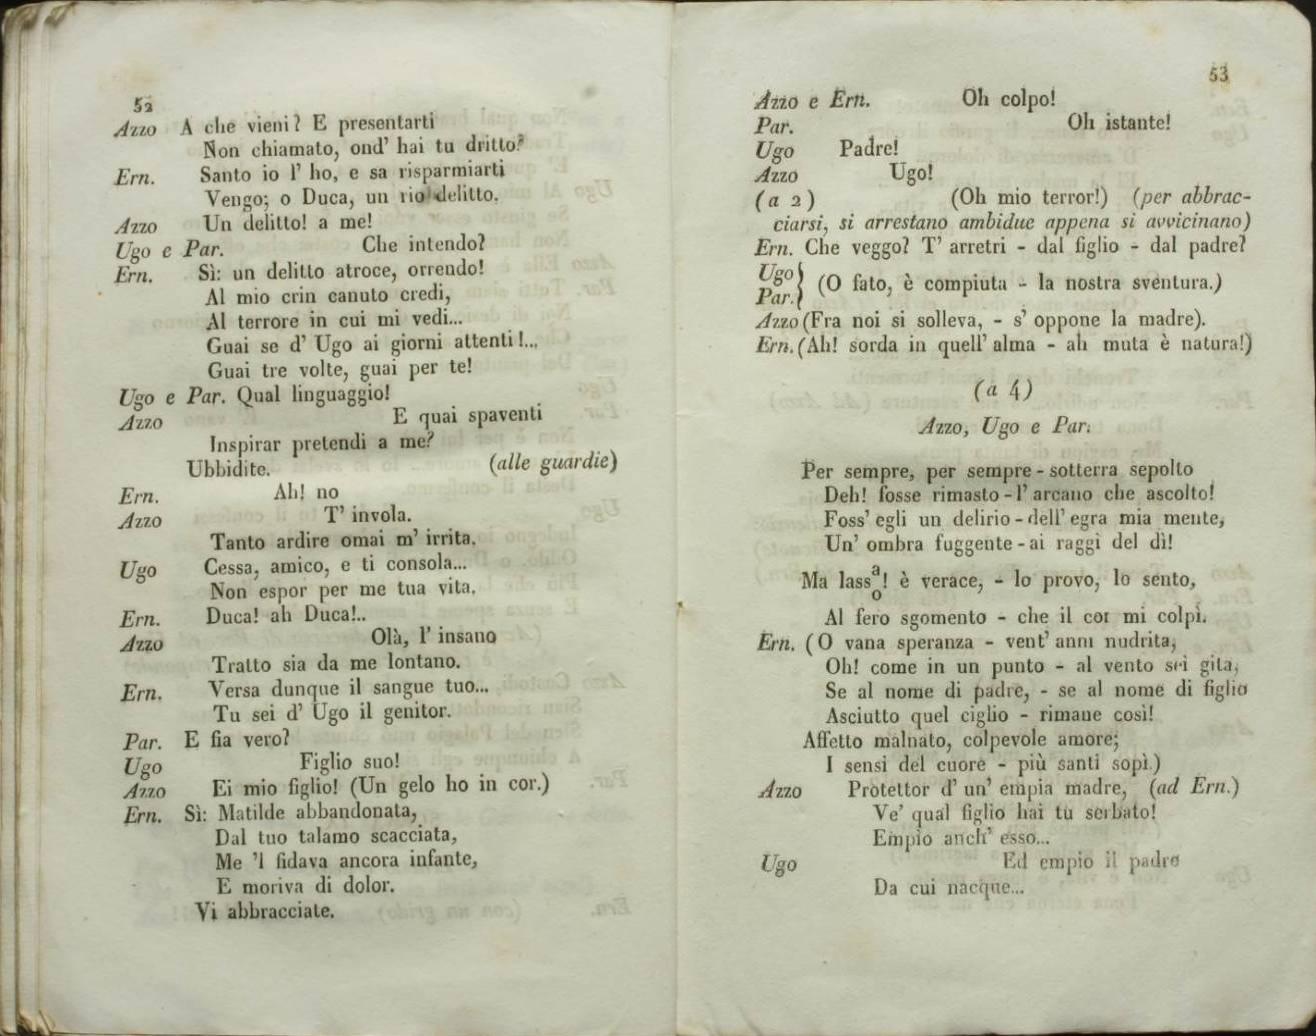 52
Azzo A che vieni? E presentarti
Non chiamato, ond' hai tu dritto?
Ern. Santo io l' ho, e sa risparmiarti
Vengo; o Duca, un rio delitto.
Azzo Un delitto! a me!
Ugo e Par. Che intendo?
Ern. Sì: un delitto atroce, orrendo!
Al mio crin canuto credi,
Al terrore in cui mi vedi...
Guai se d' Ugo ai giorni attenti!...
Guai tre volte, guai per te!
Ugo e Par. Qual linguaggio!
Azzo E quai spaventi
Inspirar pretendi a me?
Ubbidite. (alle guardie)
Ern. Ah! no
Azzo T' invola.
Tanto ardire omai m' irrita.
Ugo Cessa, amico, e ti consola...
Non espor per me tua vita.
Ern. Duca! ah Duca!..
Azzo Olà, l' insano
Tratto sia da me lontano.
Ern. Versa dunque il sangue tuo...
Tu sei d' Ugo il genitor.
Par. E fia vero?
Ugo Figlio suo!
Azzo Ei mio figlio! (Un gelo ho in cor.)
Ern. Sì: Matilde abbandonata,
Dal tuo talamo scacciata,
Me 'l fidava ancora infante,
E moriva di dolor.
Vi abbracciate.
53
Azzo e Ern. Oh colpo!
Par. Oh istante!
Ugo Padre!
Azzo Ugo!
(a 2) (Oh mio terror!) (per abbrac-
ciarsi, si arrestano ambidue appena si avvicinano)
Ern. Che veggo? T' arretri - dal figlio - dal padre?
Ugo }
Par. } (O fato, è compiuta - la nostra sventura.)
Azzo (Fra noi si solleva, - s' oppone la madre).
Ern. (Ah! sorda in quell' alma - ah muta è natura!)
(a 4)
Azzo, Ugo e Par.
Per sempre, per sempre - sotterra sepolto
Deh! fosse rimasto - l' arcano che ascolto!
Foss' egli un delirio - dell' egra mia mente,
Un' ombra fuggente - ai raggi del dì!
Ma lassa/o! è verace, - lo provo, lo sento,
Al fero sgomento - che il cor mi colpì.
Ern. (O vana speranza - vent' anni nudrita,
Oh! come in un punto - al vento sei gita,
Se al nome di padre, - se al nome di figlio
Asciutto quel ciglio - rimane così!
Affetto malnato, colpevole amore;
I sensi del cuore - più santi sopì.)
Azzo Protettor d' un' empia madre, (ad Ern.)
Ve' qual figlio hai tu serbato!
Empio anch' esso...
Ugo Ed empio il padre
Da cui nacque...